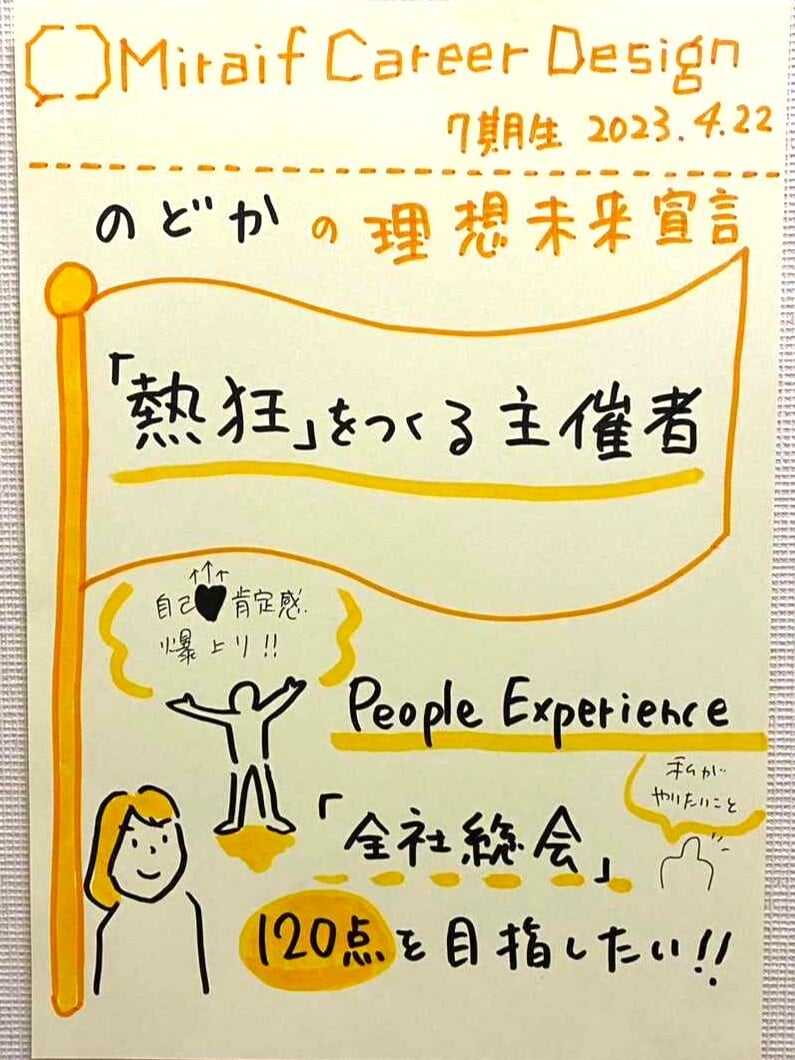 Miraif Career Design
7期生 2023.4.22
のどかの理想未来宣言
「熱狂」をつくる主催者
自己肯定感
爆上り!!
People Experience
私が
やりたいこと
「全社総会」
120点を目指したい!!